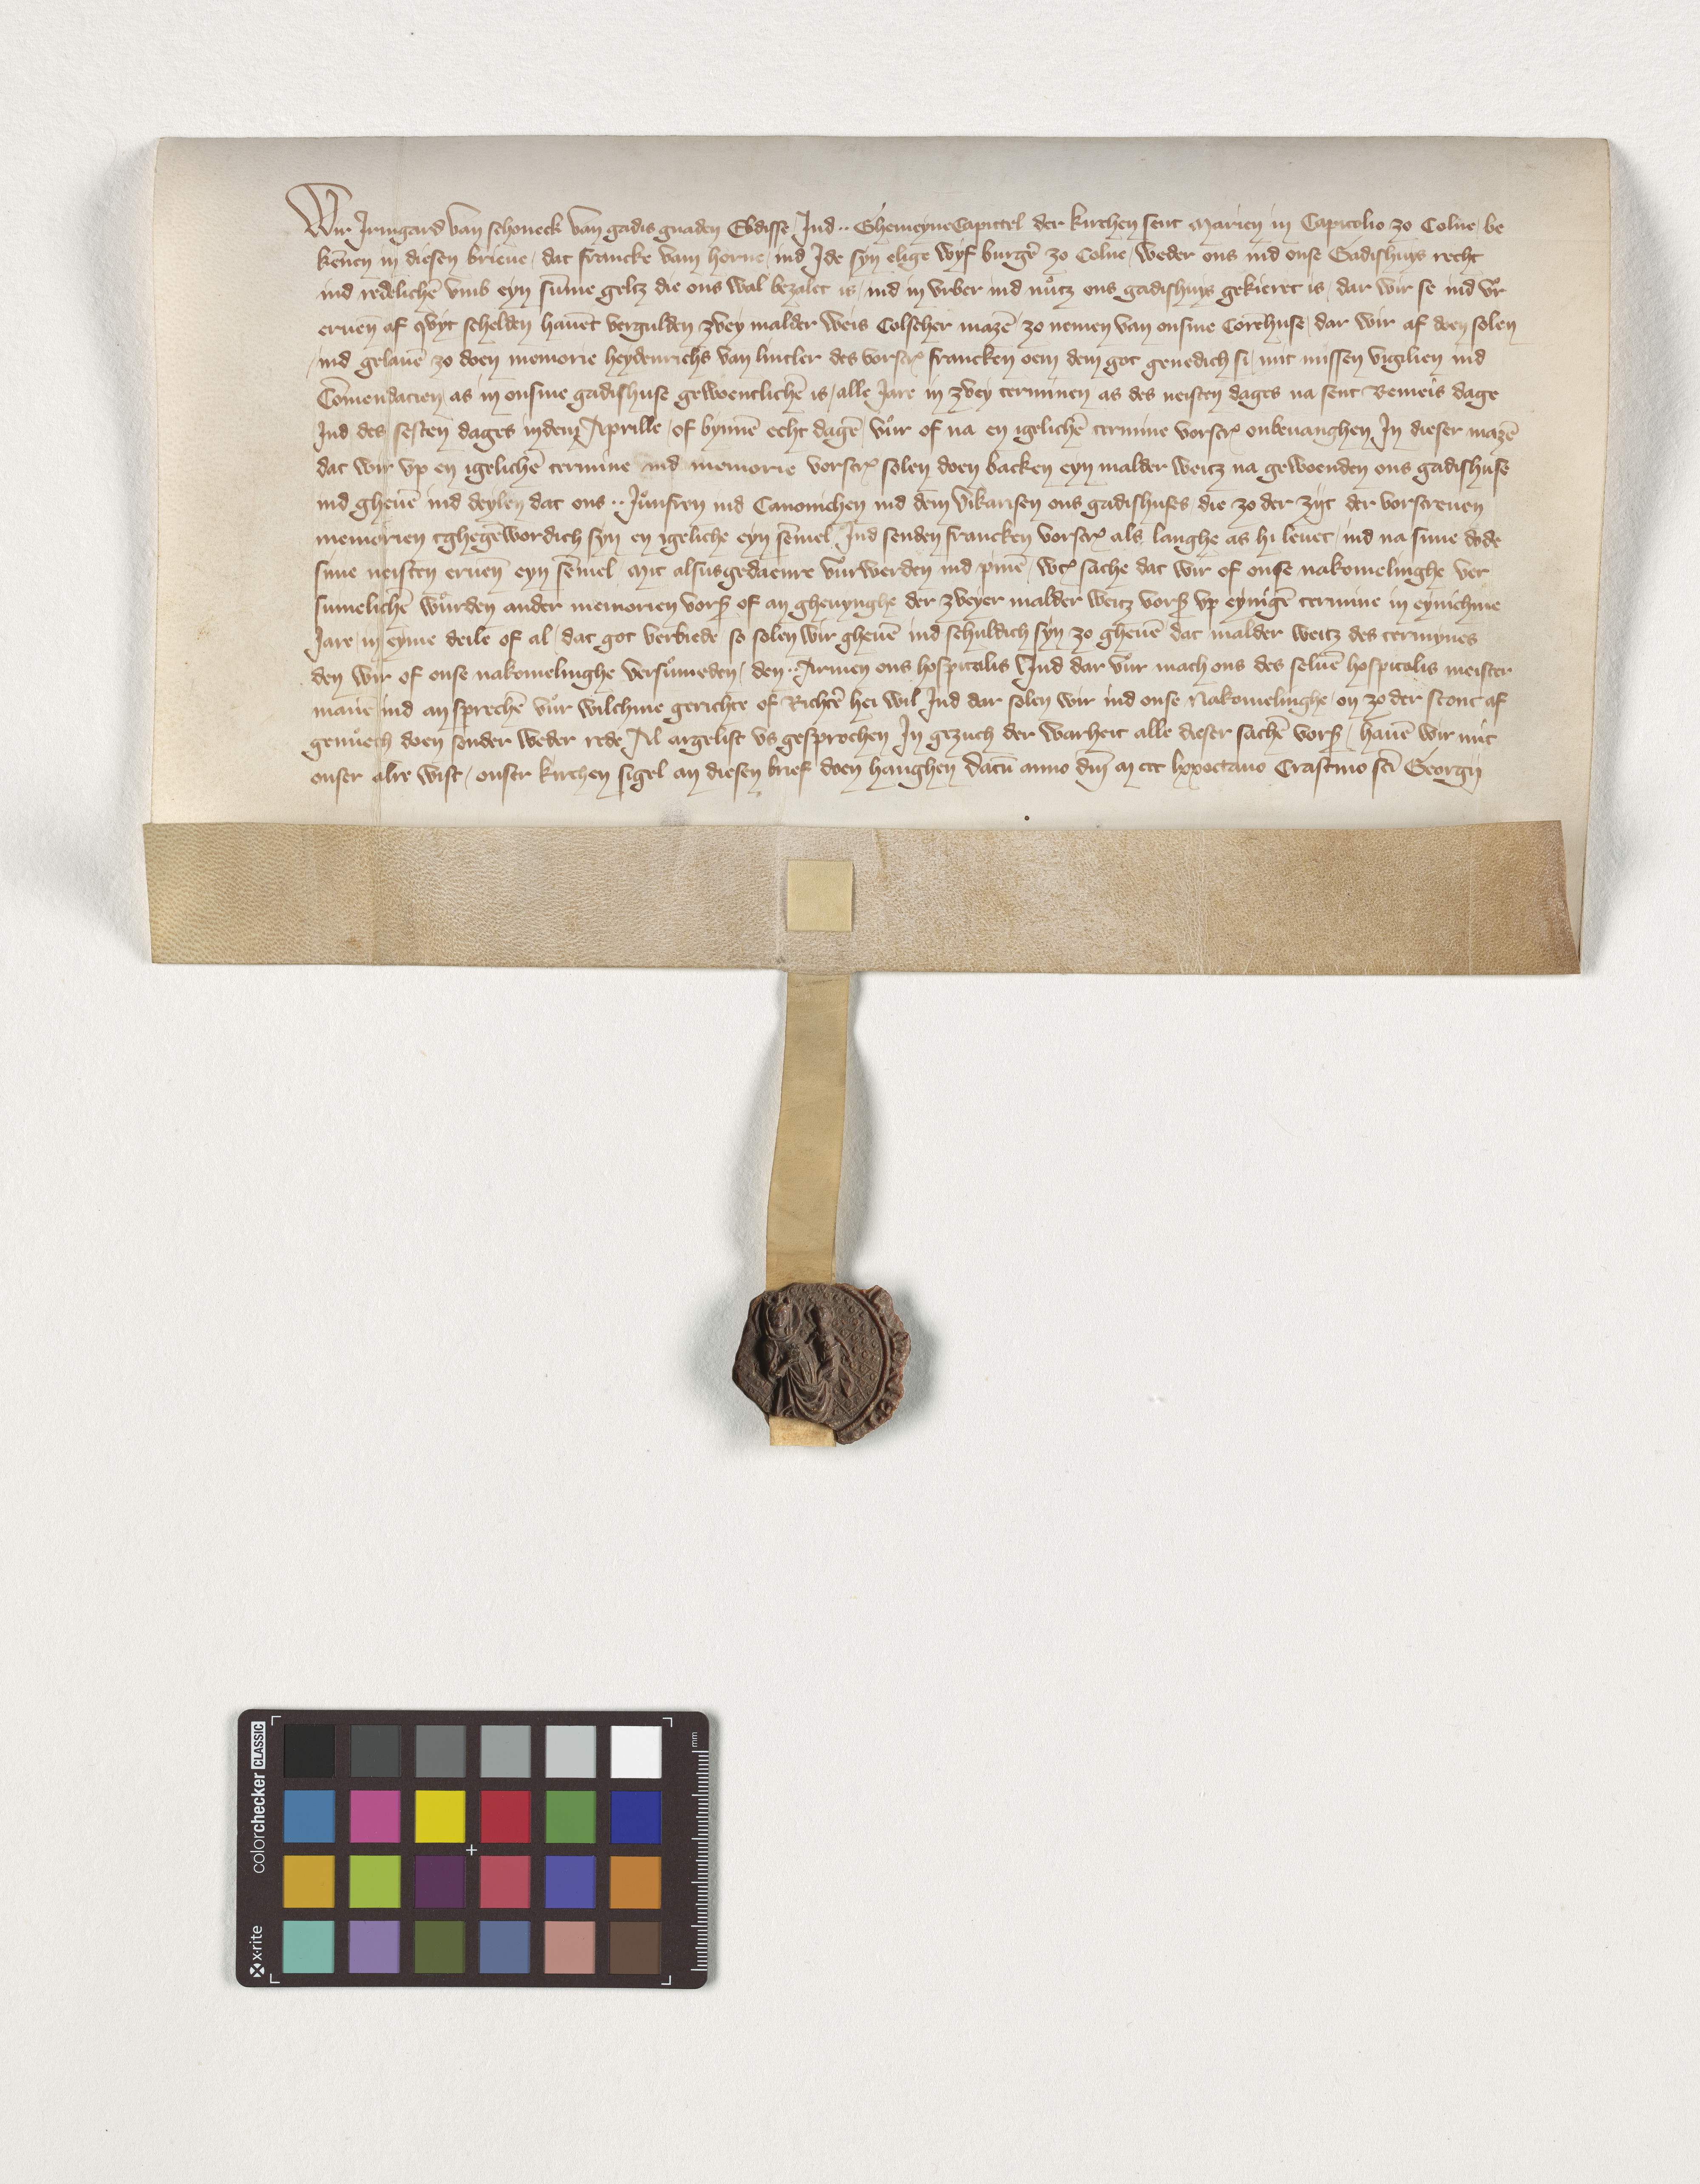 Wir Irmgard van schoneck van gadis gnaden Ebdisse Ind ·· Ghemeyne Capittel der kirchen sent Marien in Capitolio zo Colne / be
kēnen in diesen brieue / dat francke vam horne / ind Ide syn elige wyf burgē zo Colne / weder ons ind onse Gadishuys recht
ind redelichē vmb eyn sūme geltz die ons wal bezalet is / ind in vrber ind nůtz ons gadishuys gekieret is / dar wir se ind vr
eruen af qvyt schelden hauēt vergulden zvey malder weis Colscher mazē zo nemen van onsme Cornehuse / dar wir af doen solen
ind gelauē zo doen memorie heydenrichs van lintler des vorscr francken oem dem got genedich si / mit missen vigilien ind
Cōmendacien as in onsme gadishuse gewoentlichē is / alle Jare in zvey terminen as des neisten dages na sent Remeis dage
Ind des sesten dages inden Aprille / of bynnē echt dagē / vůr of na en igelichē termine vorscr onbeuanghen In dieser mazē
dat wir vp en igelichē termine ind memorie vorscr solen doen backen eyn malder weitz na gewoenden ons gadishuse
ind gheuē ind deylen dat ons ·· Jůnfren ind Canonichen ind dem vikarisen ons gadishuses die zo der zijt der vorscreuen
memorien tghegēwordich syn en igeliche eyn sēmel Ind senden francken vorscr als langhe as hi leuet / ind na sime dode
sime neisten eruen eyn sēmel Mit alsusgedaenre vůrwerden ind pinē / were sache dat wir of onse nakomelinghe ver
sumelichē wůrden ander memorien vors of an gheuynghe der zveyer malder weitz vors vp eynigē termine in eynichme
Jare / in eyme deile of al / dat got verbiede so solen wir gheuē ind schuldich syn zo gheuē dat malder weitz des termynes
den wir of onse nakomelinghe versůmeden / den ·· Armen ons hospitalis Ind dar vůr mach ons des seluē hospitalis meister
manē ind an sprechē vůr wilchme gerichte of Richtē hei wil Ind dar solen wir ind onse Nakomelinghe / on zo der stont af
genůech doen sonder weder rede Al argelist vs gesprochen In gezuch der warheit alle dieser sachē vors / hauē wir mit
onser alre wist / onser kirchen sigel an diesen brief doen hanghen Datū anno dni M ccc lxxoctauo Crastino sci Georgij
colorchecker CLASSIC
x·rite
mm